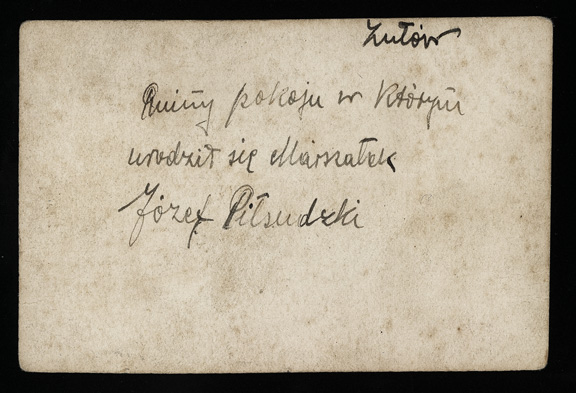 Zułów
Ruiny pokoju w którym
urodził się Marszałek
Józef Piłsudzki